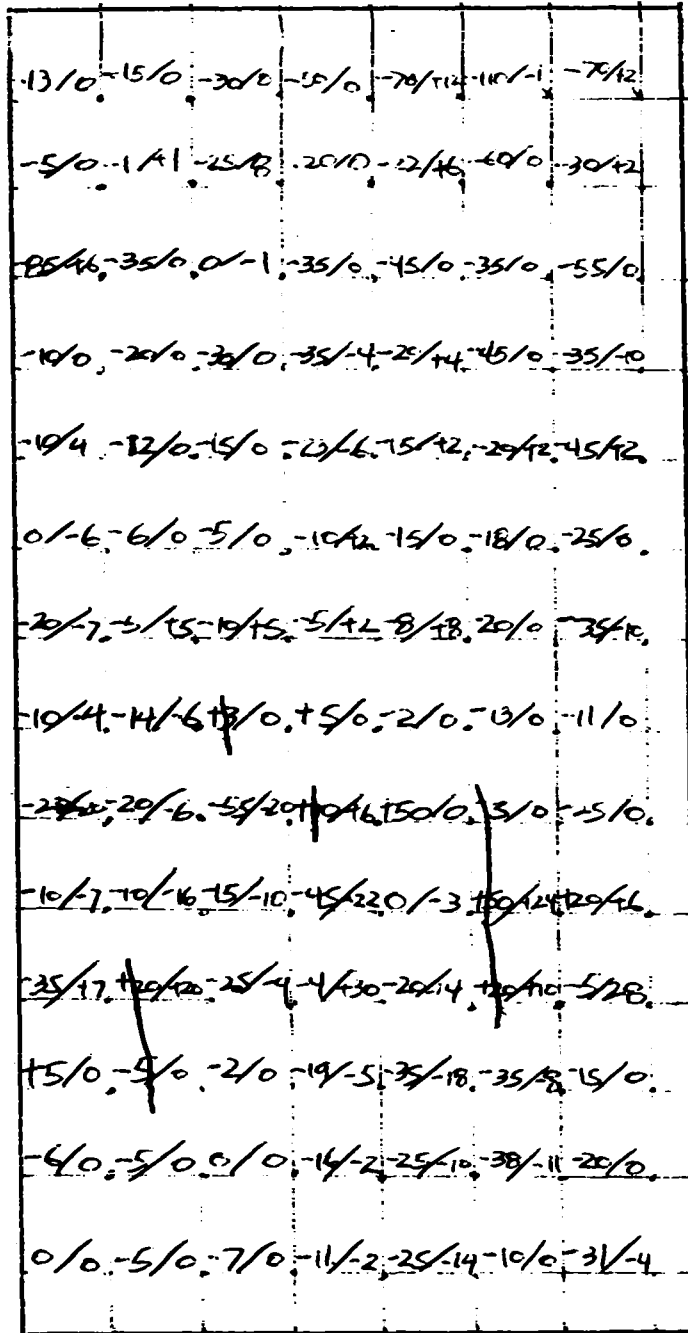 -13/0 -15/0 -30/0 -50/0 -70/+12 -110/-1 -70/+2
-5/0 -1/+1 -25/8 -20/0 -12/+6 -60/0 -30/+2
-35/0 0/-1 -35/0 -45/0 -35/0 -55/0
-10/0 -20/0 -30/0 -35/-4 -20/+4 -45/0 -35/-10
-10/4 -12/0 -15/0 -15/+2 -20/+2 -45/+2
0/-6 -6/0 -5/0 -10/+2 -15/0 -18/0 -25/0
-20/-7 -5/+5 -10/+5 -5/+2 -8/+8 20/0 -35/-10
-10/-4 -14/-6 +3/0 +5/0 -2/0 -13/0 -11/0
-20/-6 -55/-20 +10/+6 +50/0 -5/0
-10/-7 -10/-16 -15/-10 -45/-22 0/-3 +50/+24 +20/+6
-35/+7 +20/+20 -25/-4 -4/+30 -20/14 +20/+10 -5/28
+5/0 -5/0 -2/0 -19/-5 -35/-18 -35/-8 -15/0
-6/0 -5/0 0/0 -16/-2 -25/-10 -38/-11 -20/0
0/0 -5/0 -7/0 -11/-2 -25/-14 -10/0 -31/-4